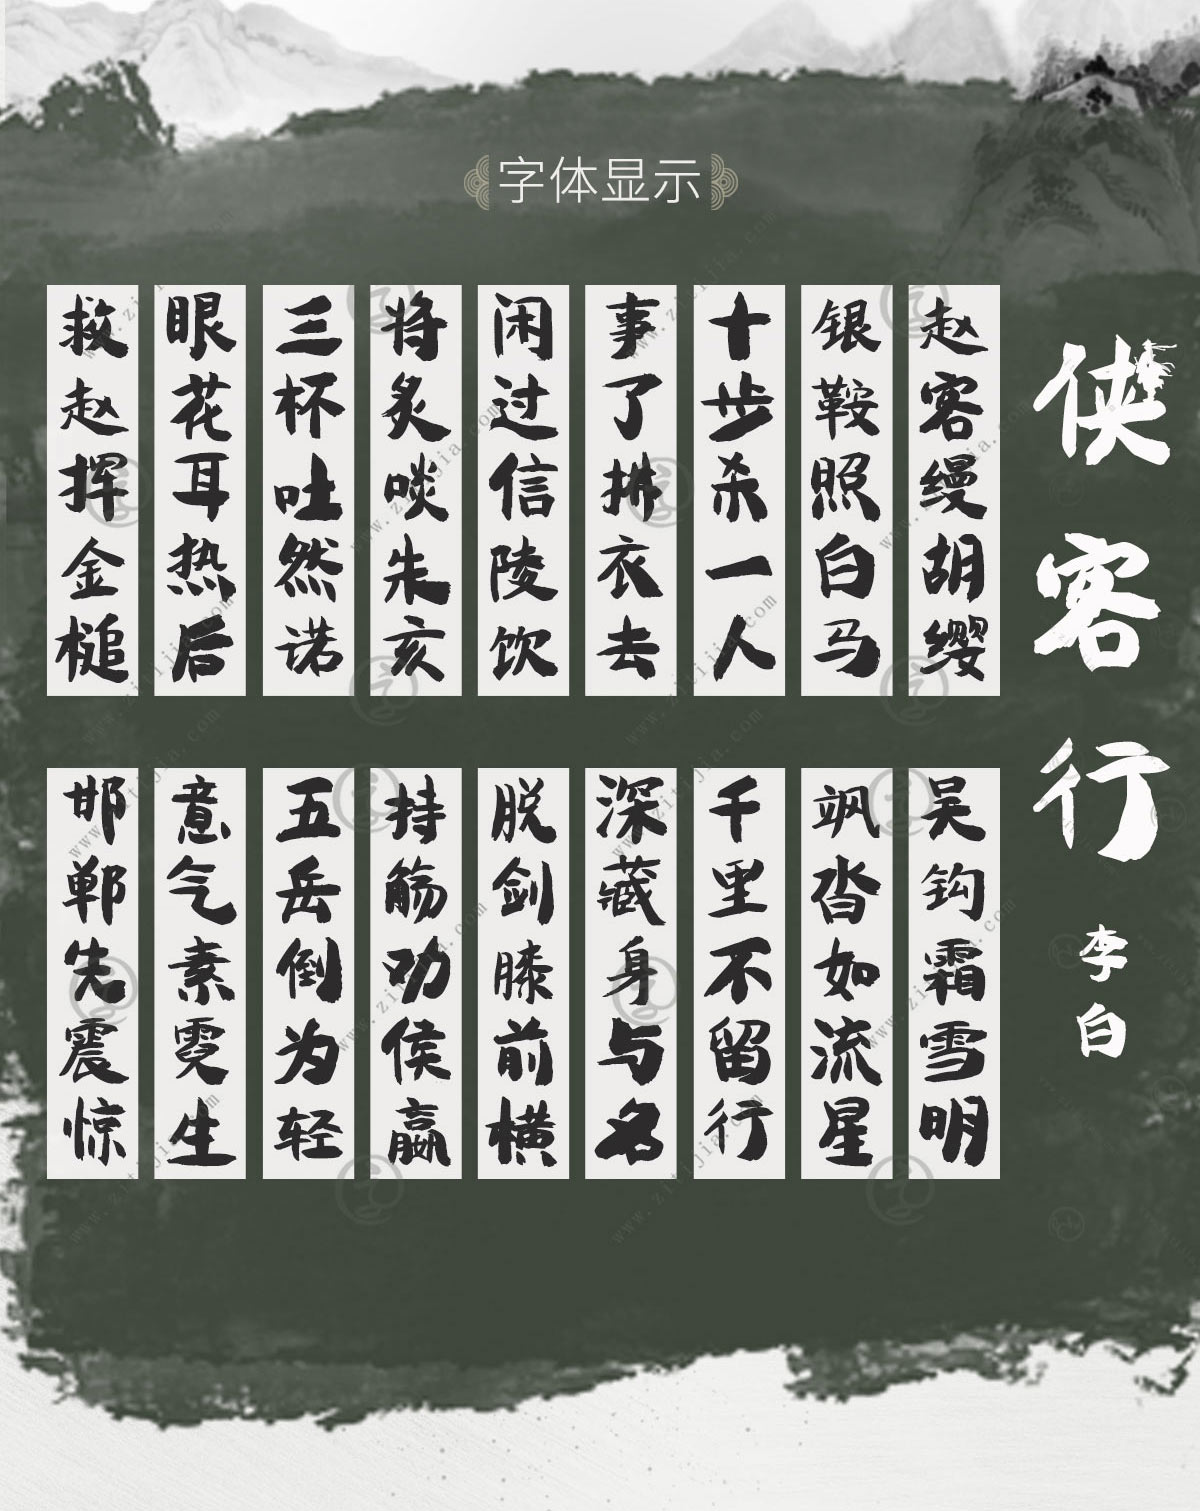 字体显示
侠客行
李白
赵客缦胡缨
吴钩霜雪明
银鞍照白马
飒沓如流星
十步杀一人
千里不留行
事了拂衣去
深藏身与名
闲过信陵饮
脱剑膝前横
将炙啖朱亥
持觞劝侯嬴
三杯吐然诺
五岳倒为轻
眼花耳热后
意气素霓生
救赵挥金槌
邯郸先震惊
www.zitijia.com